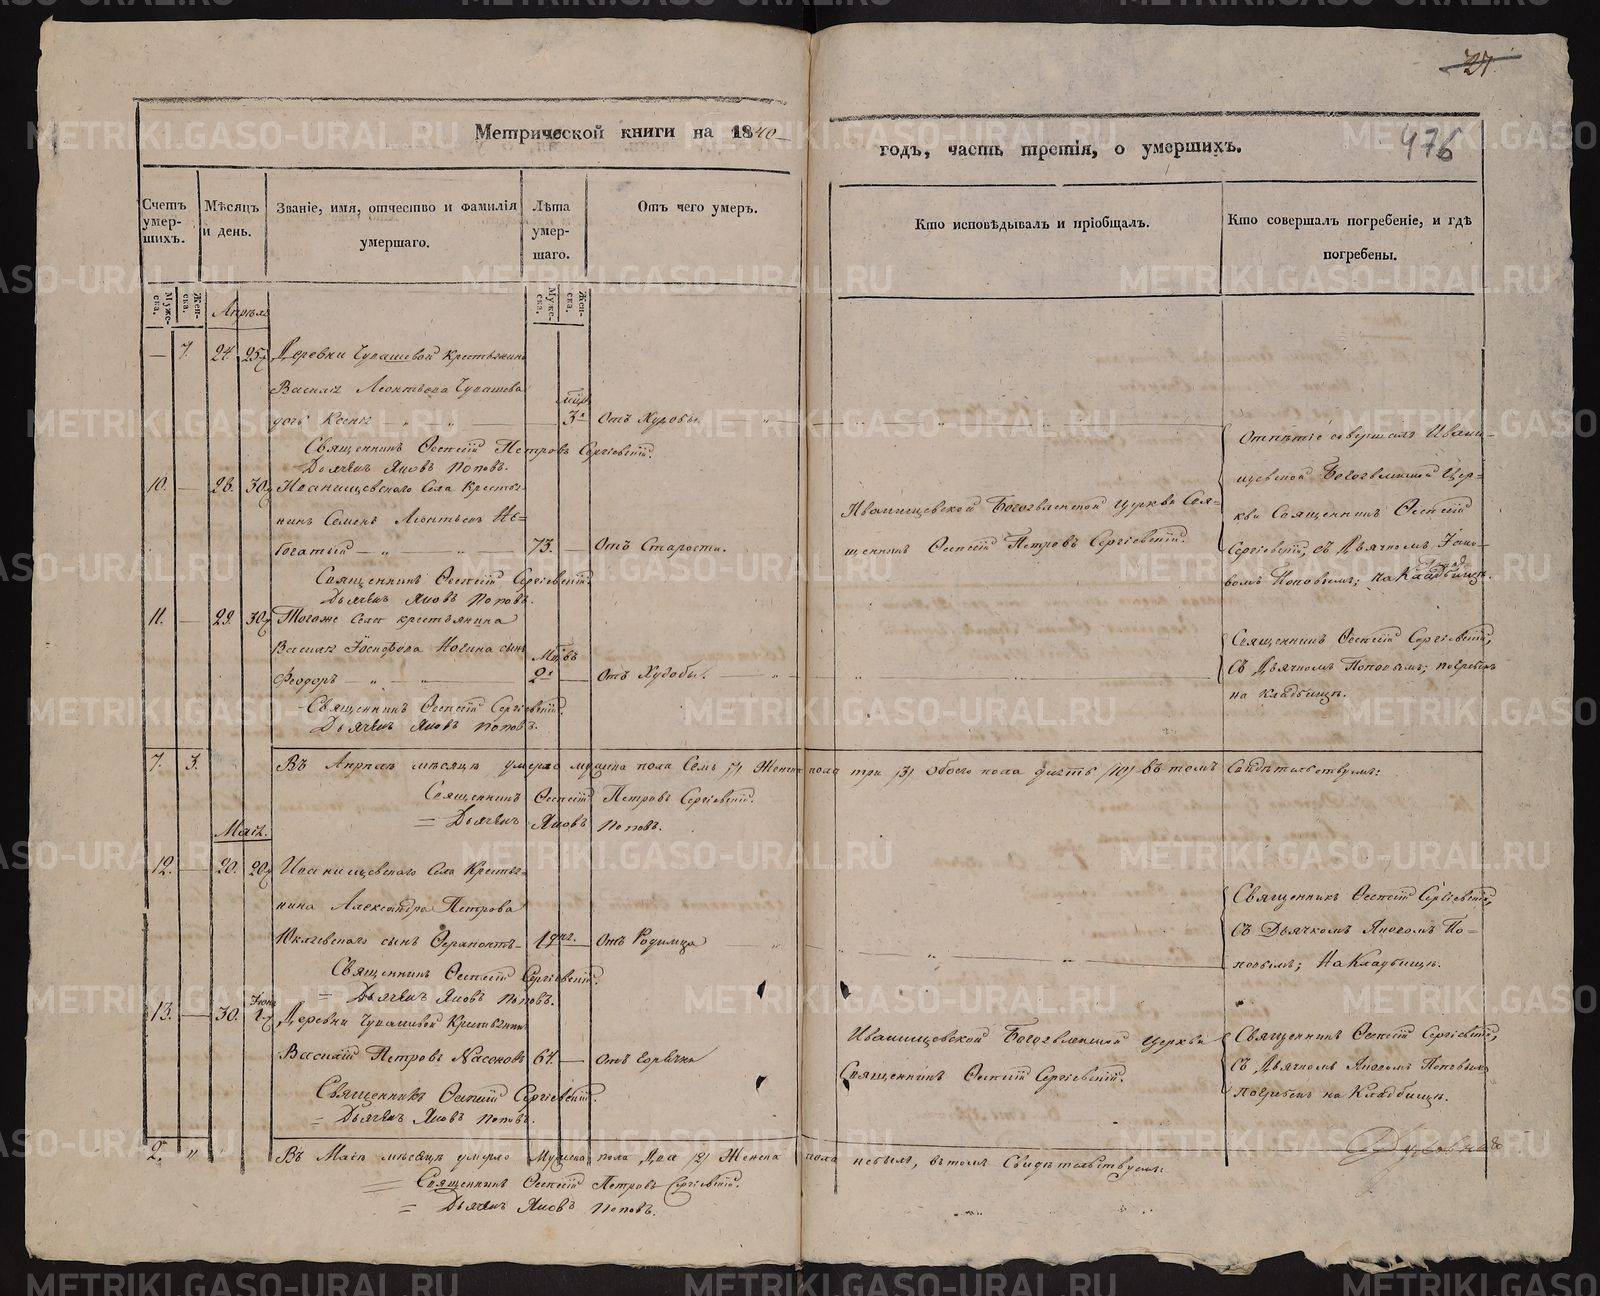 27.
476
Метрической книги на 1840
годъ, часть третія, о умершихъ.
Счетъ умер-шихъ.
Мѣсяцъ и день.
Званіе, имя, отчество и фамилія умершаго.
Лѣта умер-шаго.
Отъ чего умеръ.
Кто исповѣдывалъ и пріобщалъ.
Кто совершалъ погребеніе, и гдѣ погребены.
Муже-ска.
Жен-ска.
Муже-ска.
Жен-ска.
Апрѣль
7. 24. 25. Деревни Чупашевой крестьянина
Василія Леонтьева Чупашева
дочь 3. Отъ Худобы.
Священникъ Петровъ Сергіевскій.
Дьячекъ Яковъ Поповъ.
10. 26. 30. Иванищевскаго Села Крестья-
нинъ Семенъ Леонтьевъ Не-
богатый 73. Отъ Старости.
Иванищевской Богоявленской Церкви Свя-
щенникъ Петровъ Сергіевскій.
Отпѣтіе совершалъ Ивани-
щевской Богоявленской Цер-
кви Священникъ
Сергіевскій, съ Дьячкомъ Яко-
вомъ Поповымъ; на Кладбищѣ.
Священникъ Сергіевскій.
Дьячекъ Яковъ Поповъ.
11. 29. 30. Тогоже Села крестьянина
Василія сынъ
Феодоръ 2. Отъ Худобы.
Священникъ Сергіевскій,
съ Дьячкомъ Поповымъ; погребенъ
на Кладбищѣ.
Священникъ Сергіевскій.
Дьячекъ Яковъ Поповъ.
7. 3. Въ Апрѣлѣ мѣсяцѣ умерло мужеска пола Семь /7/ Женска пола три /3/ обоего пола десять /10/ въ томъ Свидѣтельствуемъ:
Священникъ Петровъ Сергіевскій.
Дьячекъ Яковъ Поповъ.
Май.
12. 20. 20. Иванищевскаго Села Крестья-
нина Александра Петрова
сынъ 1 дня. Отъ Родимца
Священникъ Сергіевскій,
съ Дьячкомъ Яковомъ По-
повымъ; на Кладбищѣ.
Священникъ Сергіевскій.
Дьячекъ Яковъ Поповъ.
13. 30. Іюня 1. Деревни Чупашевой Крестьянинъ
Василій Петровъ Насоновъ 67. Отъ Горячки
Иванищевской Богоявленской Церкви
Священникъ Сергіевскій.
Священникъ Сергіевскій,
съ Дьячкомъ Яковомъ Поповымъ
погребенъ на Кладбищѣ.
Священникъ Сергіевскій.
Дьячекъ Яковъ Поповъ.
2. " Въ Маѣ мѣсяцѣ умерло Мужеска пола Два /2/ Женска пола небыло, въ томъ Свидѣтельствуемъ:
Священникъ Петровъ Сергіевскій.
Дьячекъ Яковъ Поповъ.
METRIKI.GASO-URAL.RU